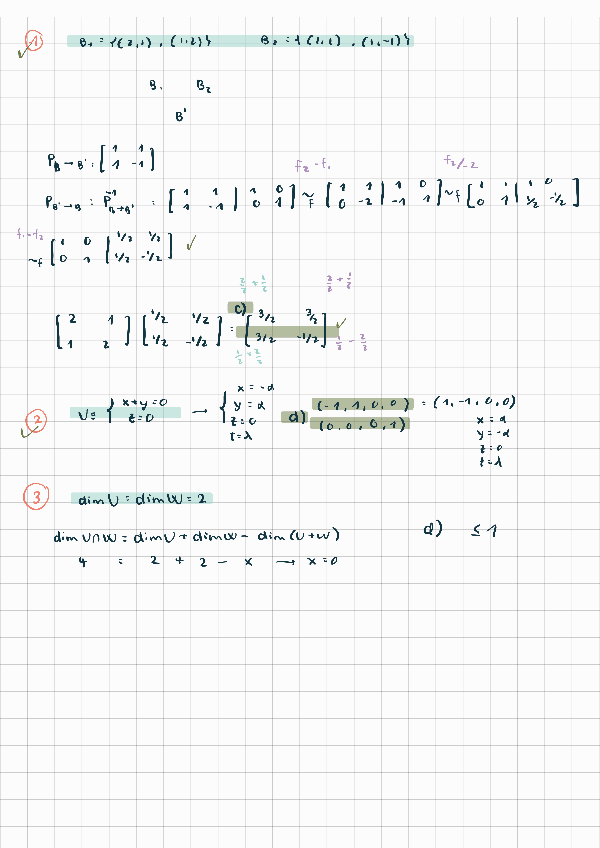 1 B₁ = {(2,1), (1,2)} B₂ = {(1,1), (1,-1)}
B₁ B₂
B'
P B→B' : [1 1; 1 -1]
f₂-f₁ f₂/-2
P B'→B : P⁻¹ B→B' : [1 1 | 1 0; 1 -1 | 0 1] ~f [1 1 | 1 0; 0 -2 | -1 1] ~f [1 1 | 1 0; 0 1 | 1/2 -1/2]
f₁-f₂ ~f [1 0 | 1/2 1/2; 0 1 | 1/2 -1/2] ✓
2/2 + 1/2 2/2 + 1/2
c)
[2 1; 1 2] [1/2 1/2; 1/2 -1/2] = [3/2 3/2; 3/2 -1/2] ✓
1/2 + 2/2 1/2 - 2/2
2 U ≡ { x+y=0 z=0 → { x=-α y=α z=0 t=λ d) (-1,1,0,0) (0,0,0,1) = (1,-1,0,0)
x=α
y=-α
z=0
t=λ
3 dim U = dim W = 2
dim U∩W = dim U + dim W - dim (U+W) d) ≤ 1
4 = 2 + 2 - x → x=0